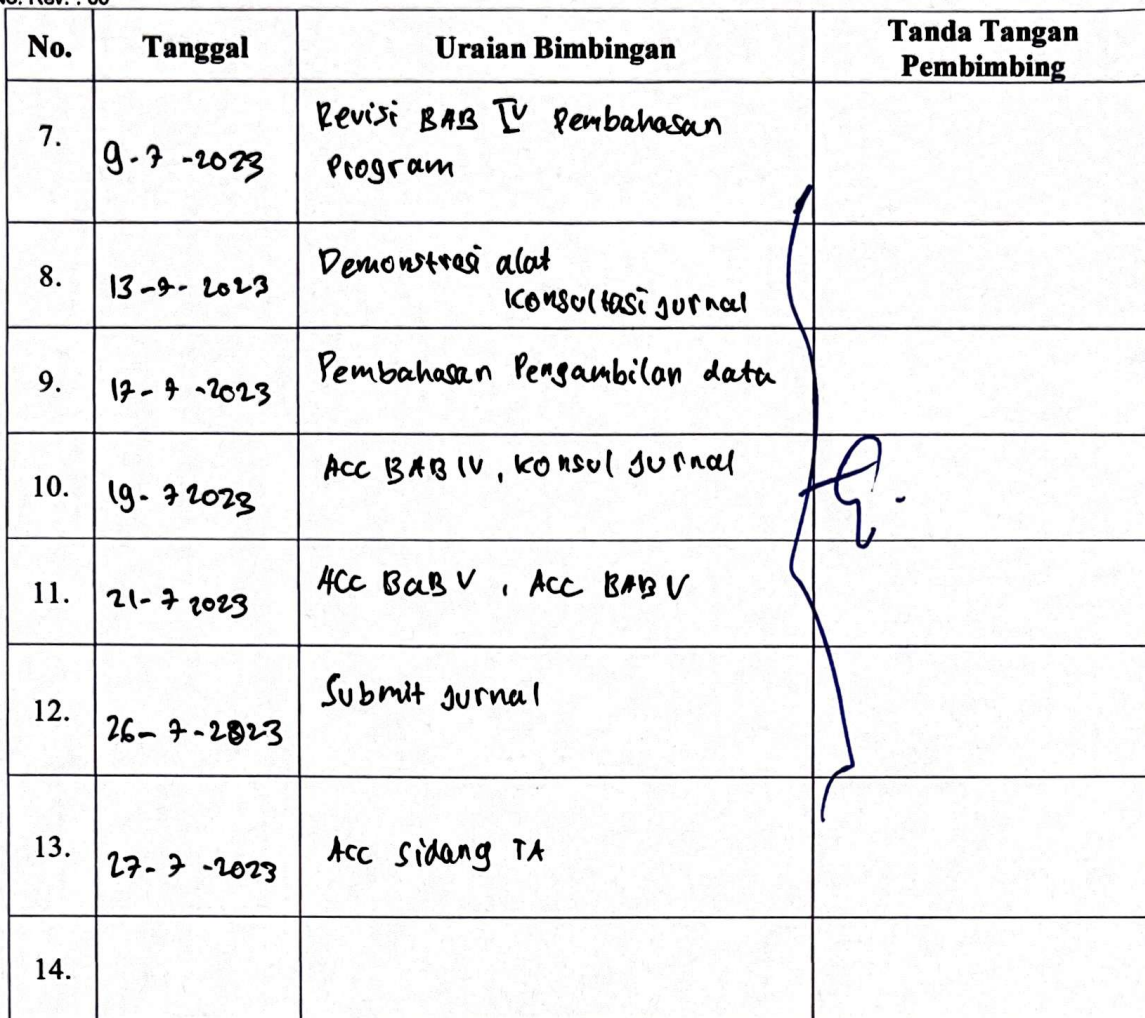 No. Tanggal Uraian Bimbingan Tanda Tangan
Pembimbing
7. 9-7-2023 Revisi BAB IV Pembahasan
Program
8. 13-7-2023 Demonstrasi alat
Konsultasi jurnal
9. 17-7-2023 Pembahasan Pengambilan data
10. 19-7 2023 Acc BAB IV, konsul jurnal
11. 21-7 2023 Acc BaB V, Acc BAB V
12. 26-7-2023 Submit jurnal
13. 27-7-2023 Acc sidang TA
14.